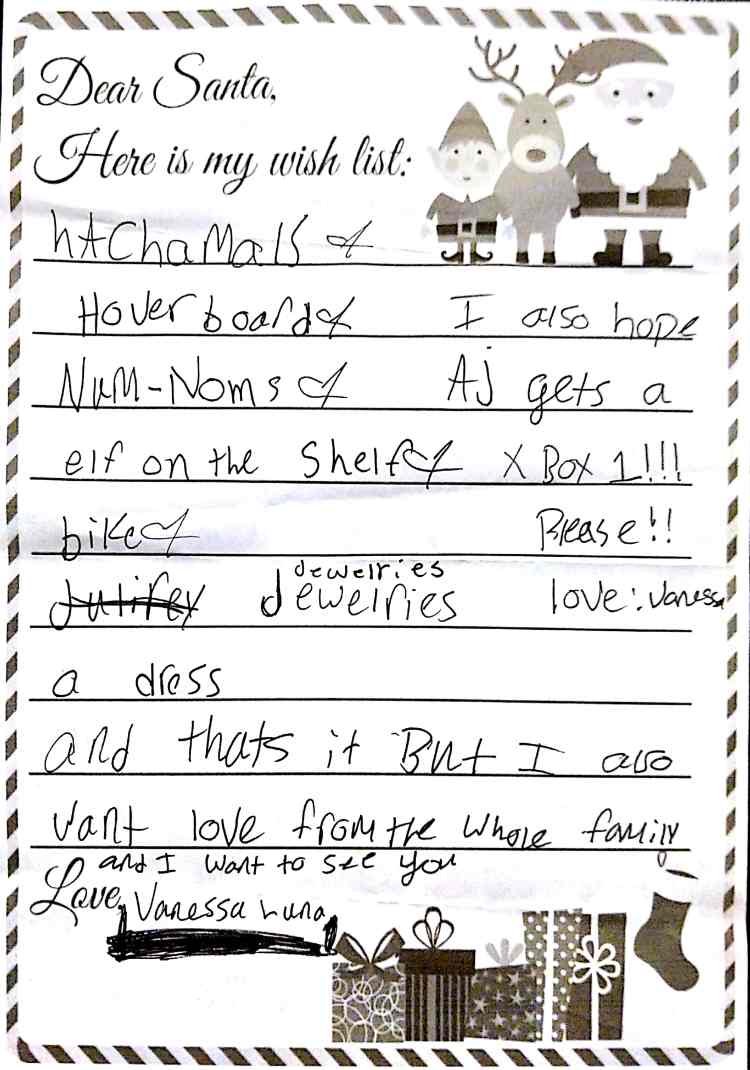 Dear Santa,
Here is my wish list:
hAChaMalS &
Hover board & I also hope
NuM-Noms & AJ gets a
elf on the Shelf & X Box 1!!!
bike & Please!!
dewelries
Jewelries love: Vanessa
a dress
and thats it But I also
vant love from the whole family
and I want to see you
Love, Vanessa Luna